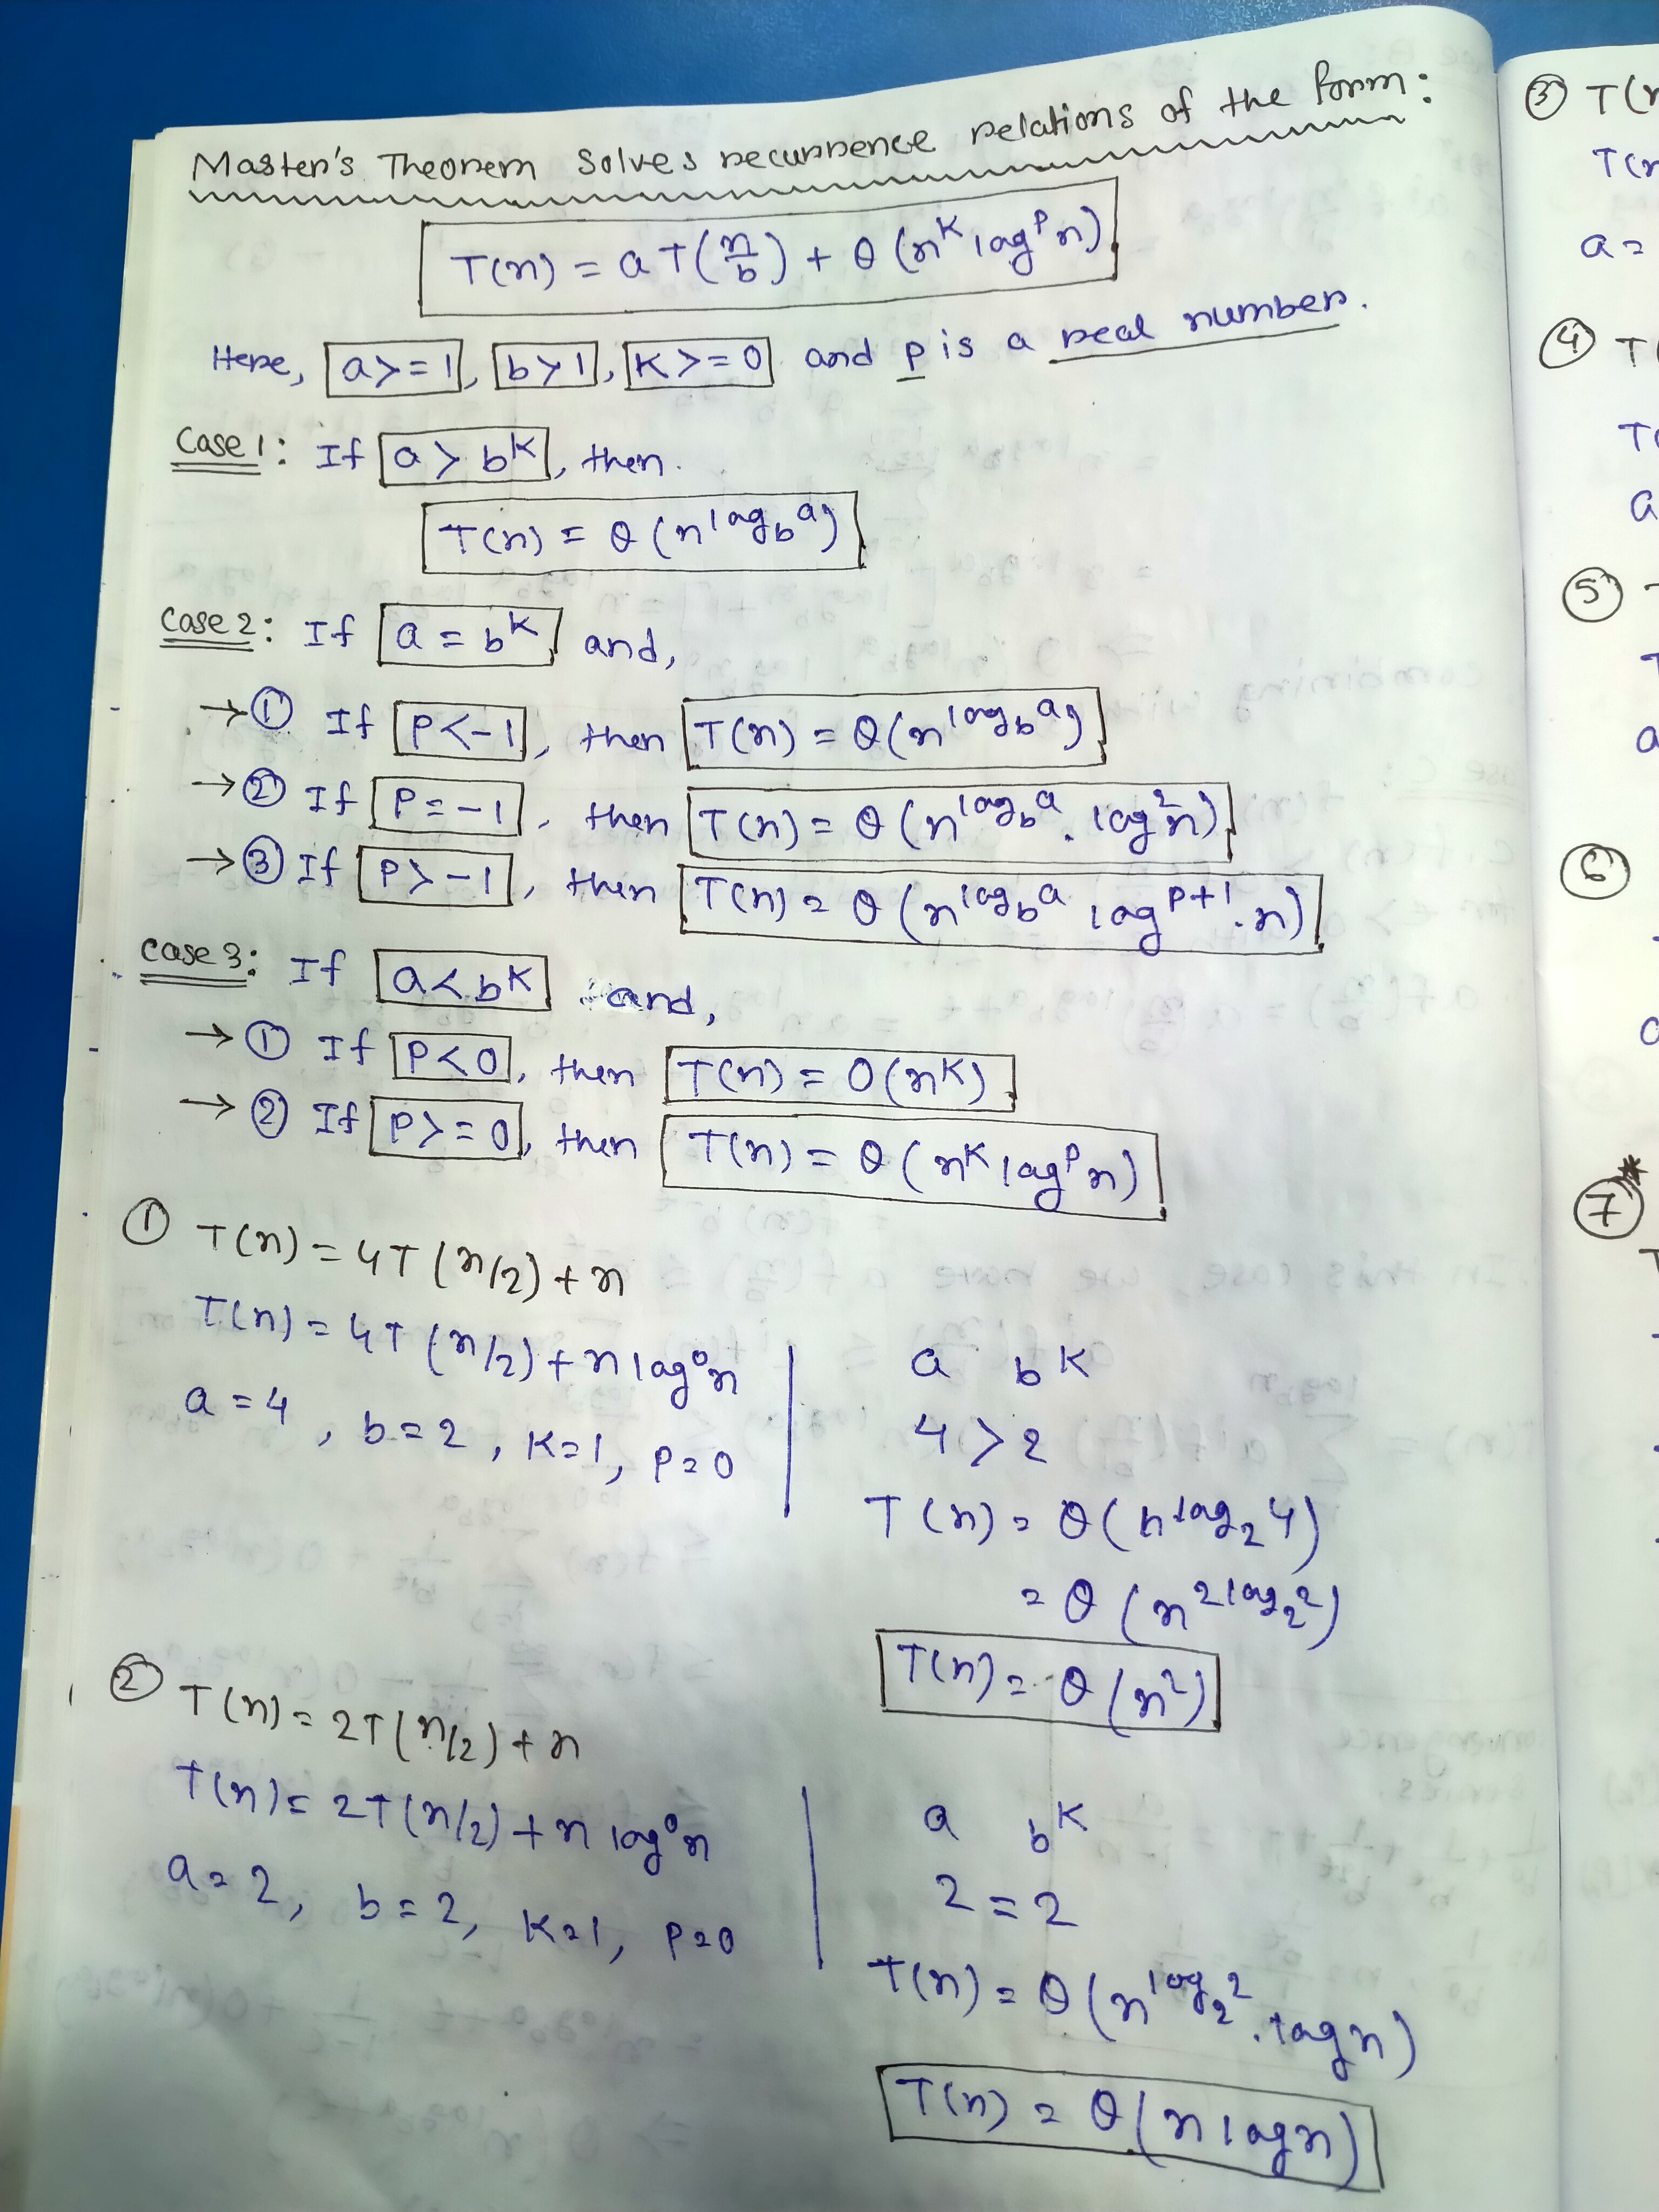 Master's Theorem Solves recurrence relations of the form:
T(n) = aT(n/b) + θ(n^k log^p n)
Here, a>=1, b>1, k>=0 and p is a real number.
Case 1: If a > b^k, then.
T(n) = θ(n^log_b a)
Case 2: If a = b^k and,
→ ① If P<-1, then T(n) = θ(n^log_b a)
→ ② If P=-1, then T(n) = θ(n^log_b a . log^2 n)
→ ③ If P>-1, then T(n) = θ(n^log_b a log^p+1 . n)
Case 3: If a<b^k and,
→ ① If P<0, then T(n) = O(n^k)
→ ② If P>=0, then T(n) = θ(n^k log^p n)
① T(n) = 4T(n/2) + n
T(n) = 4T(n/2) + n log^0 n
a=4, b=2, k=1, p=0
a b^k
4 > 2
T(n) = θ(n^log_2 4)
= θ(n^2 log_2 2)
T(n) = θ(n^2)
② T(n) = 2T(n/2) + n
T(n) = 2T(n/2) + n log^0 n
a=2, b=2, k=1, p=0
a b^k
2 = 2
T(n) = θ(n^log_2 2 . log n)
T(n) = θ(n log n)
③ T(
T(
a=
④ T
T(
a
⑤
a
⑥
a
⑦*